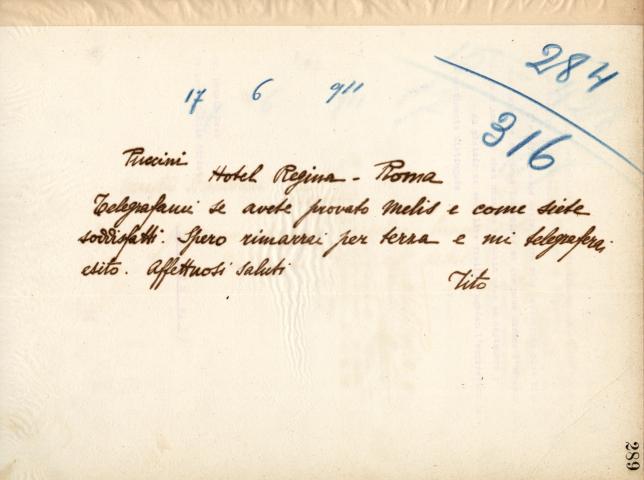 284
17 6 911
316
Puccini
Hotel Regina - Roma
Telegrafami se avete provato Melis e come siete
soddisfatti. Spero rimarrai per terza e mi telegraferai
esito. Affettuosi saluti
Tito
289